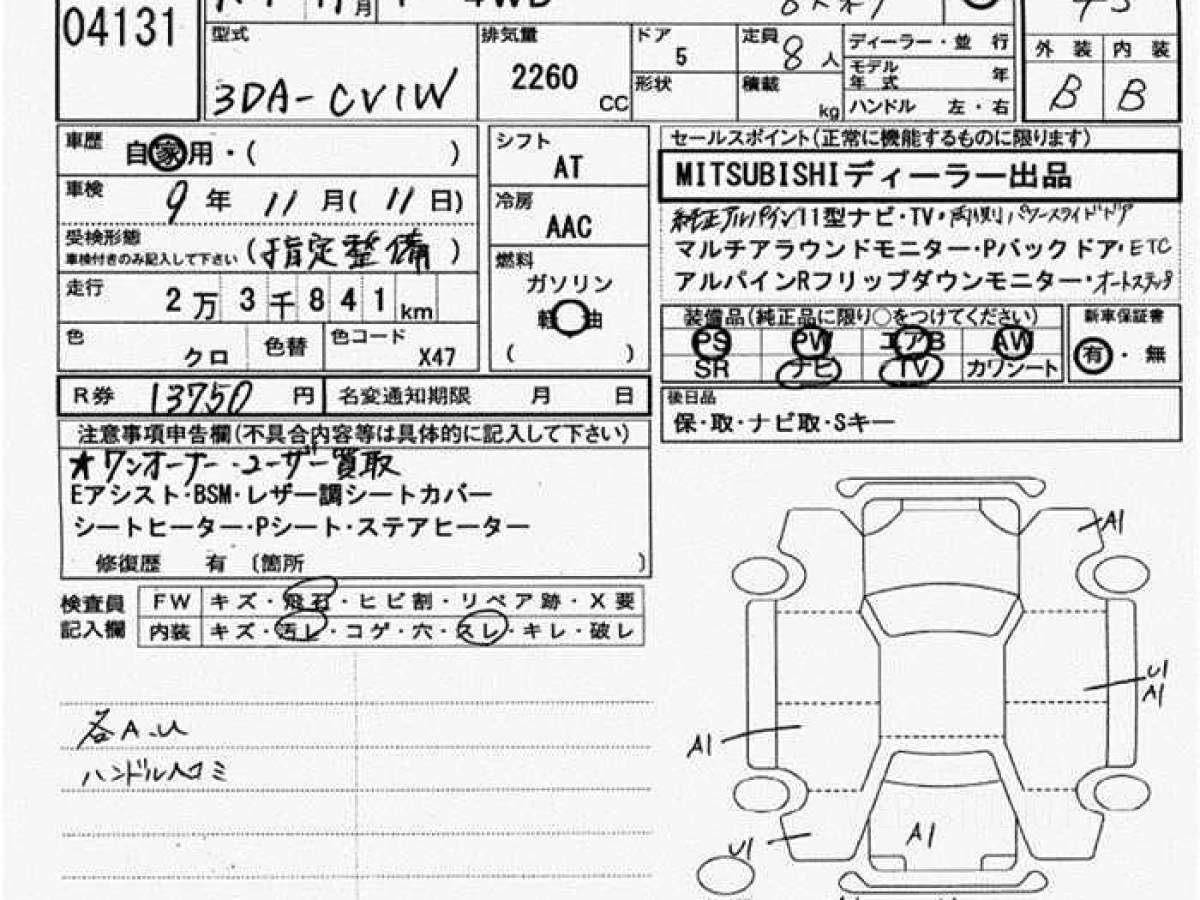 04131
月 4WD
型式 3DA-CV1W
排気量 2260 CC
ドア 5
形状
定員 8 人
積載 kg
ディーラー・並 行
モデル年式 年
ハンドル 左・右
外 装 内 装
B B
車歴 自家用・( )
車検 9 年 11 月( 11 日)
受検形態 車検付きのみ記入して下さい (指定整備)
走行 2万3千841km
色 クロ 色替 色コード X47
シフト AT
冷房 AAC
燃料 ガソリン
軽油
( )
セールスポイント(正常に機能するものに限ります)
MITSUBISHIディーラー出品
純正アルパイン11型ナビ・TV・両側パワースライドドア
マルチアラウンドモニター・Pバックドア・ETC
アルパインRフリップダウンモニター・オートステップ
装備品(純正品に限り○をつけてください)
PS PW エアB AW
SR ナビ TV カワシート
新車保証書
有・無
R券 13750 円 名変通知期限 月 日
後日品
保・取・ナビ取・Sキー
注意事項申告欄(不具合内容等は具体的に記入して下さい)
★ワンオーナー・ユーザー買取
Eアシスト・BSM・レザー調シートカバー
シートヒーター・Pシート・ステアヒーター
修復歴 有 〔箇所 〕
検査員記入欄
FW キズ・飛石・ヒビ割・リペア跡・X要
内装 キズ・汚レ・コゲ・穴・スレ・キレ・破レ
各A.U
ハンドル
A1
U1
A1
A1
U1
A1